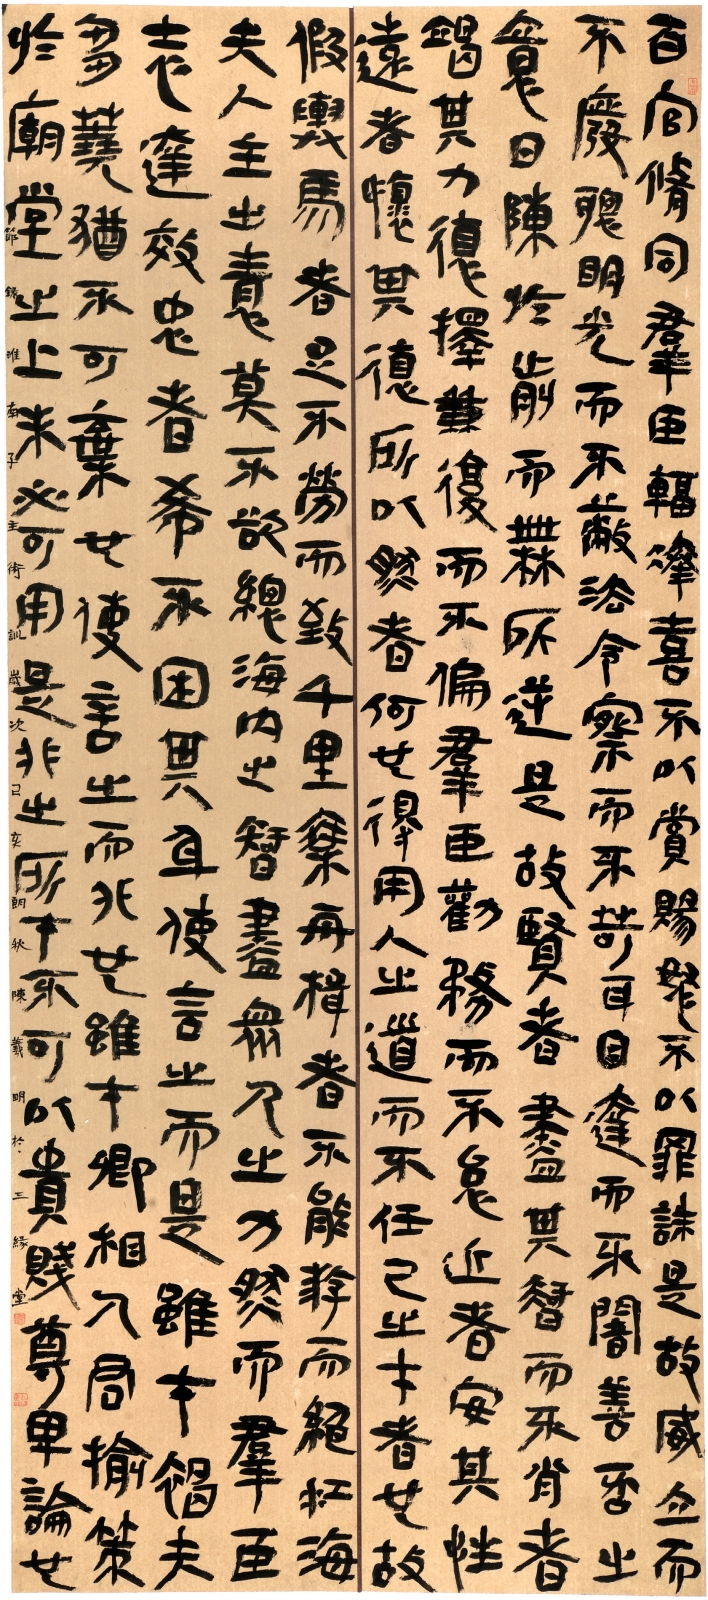 百官脩同羣臣輻湊喜不以賞賜怒不以罪誅是故威立而
不廢聰明光而不蔽法令察而不苛耳目達而不闇善否之
情日陳於前而無所逆是故賢者盡其智而不肖者
竭其力德澤兼覆而不偏羣臣勸務而不怠近者安其性
遠者懷其德所以然者何也得用人之道而不任己之才者也故
假輿馬者足不勞而致千里乘舟楫者不能游而絕江海
夫人主之情莫不欲總海內之智盡眾人之力然而羣臣
志達效忠者希不困其身使言之而是雖在褐夫
芻蕘猶不可棄也使言之而非也雖在卿相人君揄策
於廟堂之上未必可用是非之所在不可以貴賤尊卑論也
節錄淮南子主術訓歲次己亥朝秋陳羲明於三緣堂